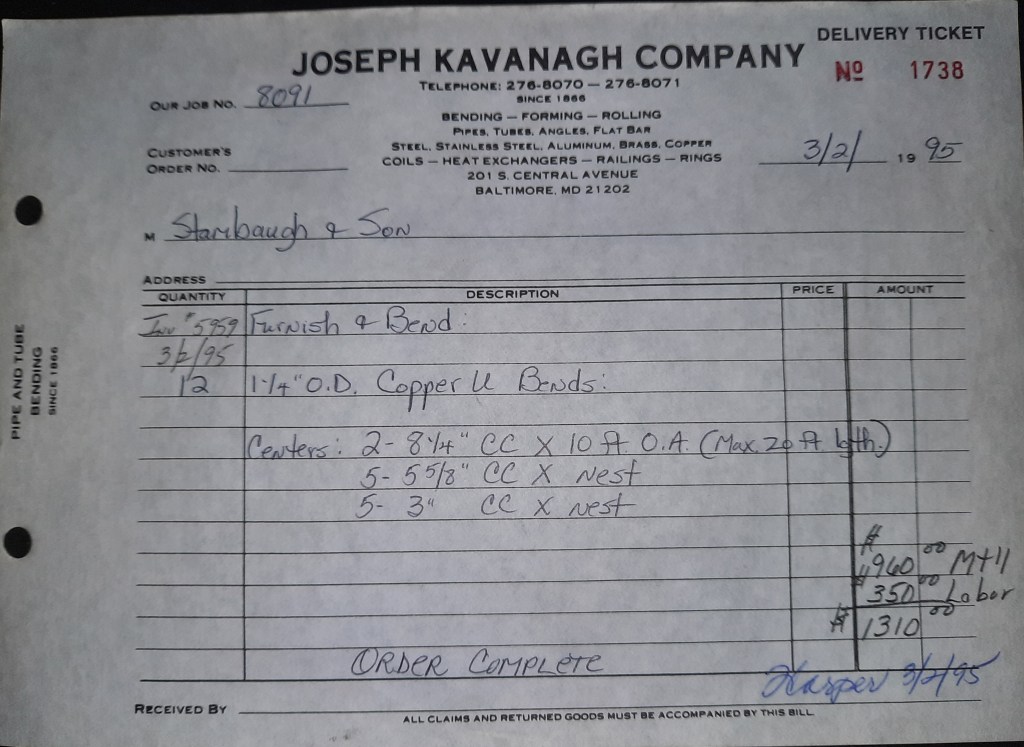 DELIVERY TICKET
JOSEPH KAVANAGH COMPANY
Nº 1738
TELEPHONE: 276-8070 — 276-8071
SINCE 1866
OUR JOB NO. 8091
BENDING — FORMING — ROLLING
PIPES, TUBES, ANGLES, FLAT BAR
STEEL, STAINLESS STEEL, ALUMINUM, BRASS, COPPER
CUSTOMER'S
ORDER NO.
COILS — HEAT EXCHANGERS — RAILINGS — RINGS
3/2/ 19 95
201 S. CENTRAL AVENUE
BALTIMORE, MD 21202
M Stambaugh & Son
ADDRESS
QUANTITY DESCRIPTION PRICE AMOUNT
Inv #5959 Furnish & Bend:
3/2/95
12 1-1/4" O.D. Copper U Bends:
Centers: 2- 8 1/4" CC X 10 ft O.A. (Max 20 ft lgth.)
5- 5 5/8" CC X nest
5- 3" CC X nest
$960.00 Mt'l
$350.00 Labor
$1310.00
ORDER COMPLETE
Kasper 3/2/95
RECEIVED BY
ALL CLAIMS AND RETURNED GOODS MUST BE ACCOMPANIED BY THIS BILL
PIPE AND TUBE
BENDING
SINCE 1866